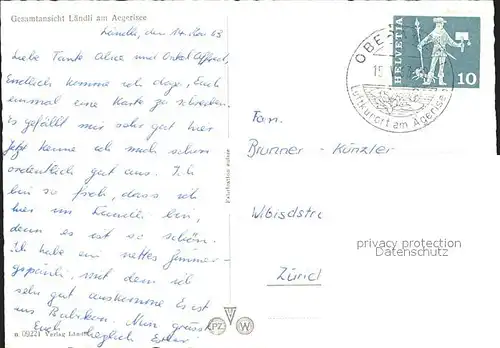 Gesamtansicht Ländli am Aegerisee
Ländli, den 14. Nov 63
Liebe Tante Alice und Onkel Alfred,
Endlich komme ich dazu, Euch
einmal eine Karte zu schreiben.
Es gefällt mir sehr gut hier
Jetzt kenne ich mich schon
ordentlich gut aus. Ich
bin so froh, dass ich
hier im Ländli bin,
denn es ist so schön.
Ich habe ein nettes Zimmer-
gspänli, mit dem ich
sehr gut auskomme. Es ist
aus Bubikon. Nun grüsst
Euch herzlich Esther
n 09221 Verlag Ländli
Fabrikation suisse
PZ
W
OBE
15
Luftkurort am Aegerisee
HELVETIA
10
Fam.
Brunner - Künzler
Wibisdstr
Zürich
privacy protection
Datenschutz